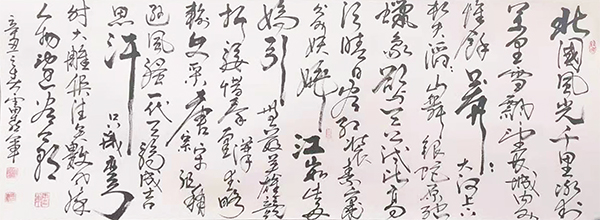 北國風光千里冰封
万里雪飘望长城内外
惟馀莽莽大河上下
顿失滔滔山舞银蛇原驰
蜡象欲与天公试比高
须晴日看红装素裹
分外妖娆江山如此多
娇引无数英雄竞
折腰惜秦皇汉武略
输文采唐宗宋祖稍
逊风骚一代天骄成吉
思汗只识弯弓
射大雕俱往矣数风流
人物还看今朝
辛丑